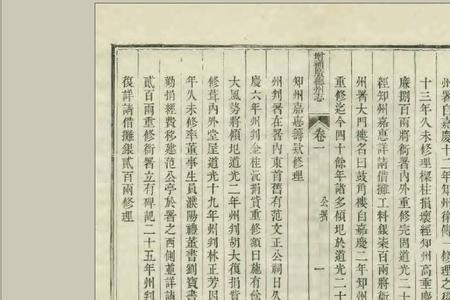 州署自嘉慶十二年知州徐傳一修理之後
十三年久未修理樑柱損壞經知州高重慶
廉捌百兩將衙署內外重修完固道光二十
經知州嘉惠詳請借攤工料銀柒百兩將衙
州署大門樓名曰鼓角樓自嘉慶二年知州
重修迄今四十餘年諸多傾圮於道光二十
州志 卷一 公署 一
知州嘉惠籌款修理
州判署在署內東首舊有范文正公祠日久
慶六年州判金桂沅捐貲重修額曰施有餘
大風勞將傾圮道光二年州判胡大復捐貲
修葺內外堂屋道光十九年州判林正芳因
年久未修率董事生員濮陽禮董書劉寶書
勸捐經費移建范公亭於署之西側並詳請
貳百兩重修衙署立有碑記二十五年州判
復詳請借攤銀貳百兩修理